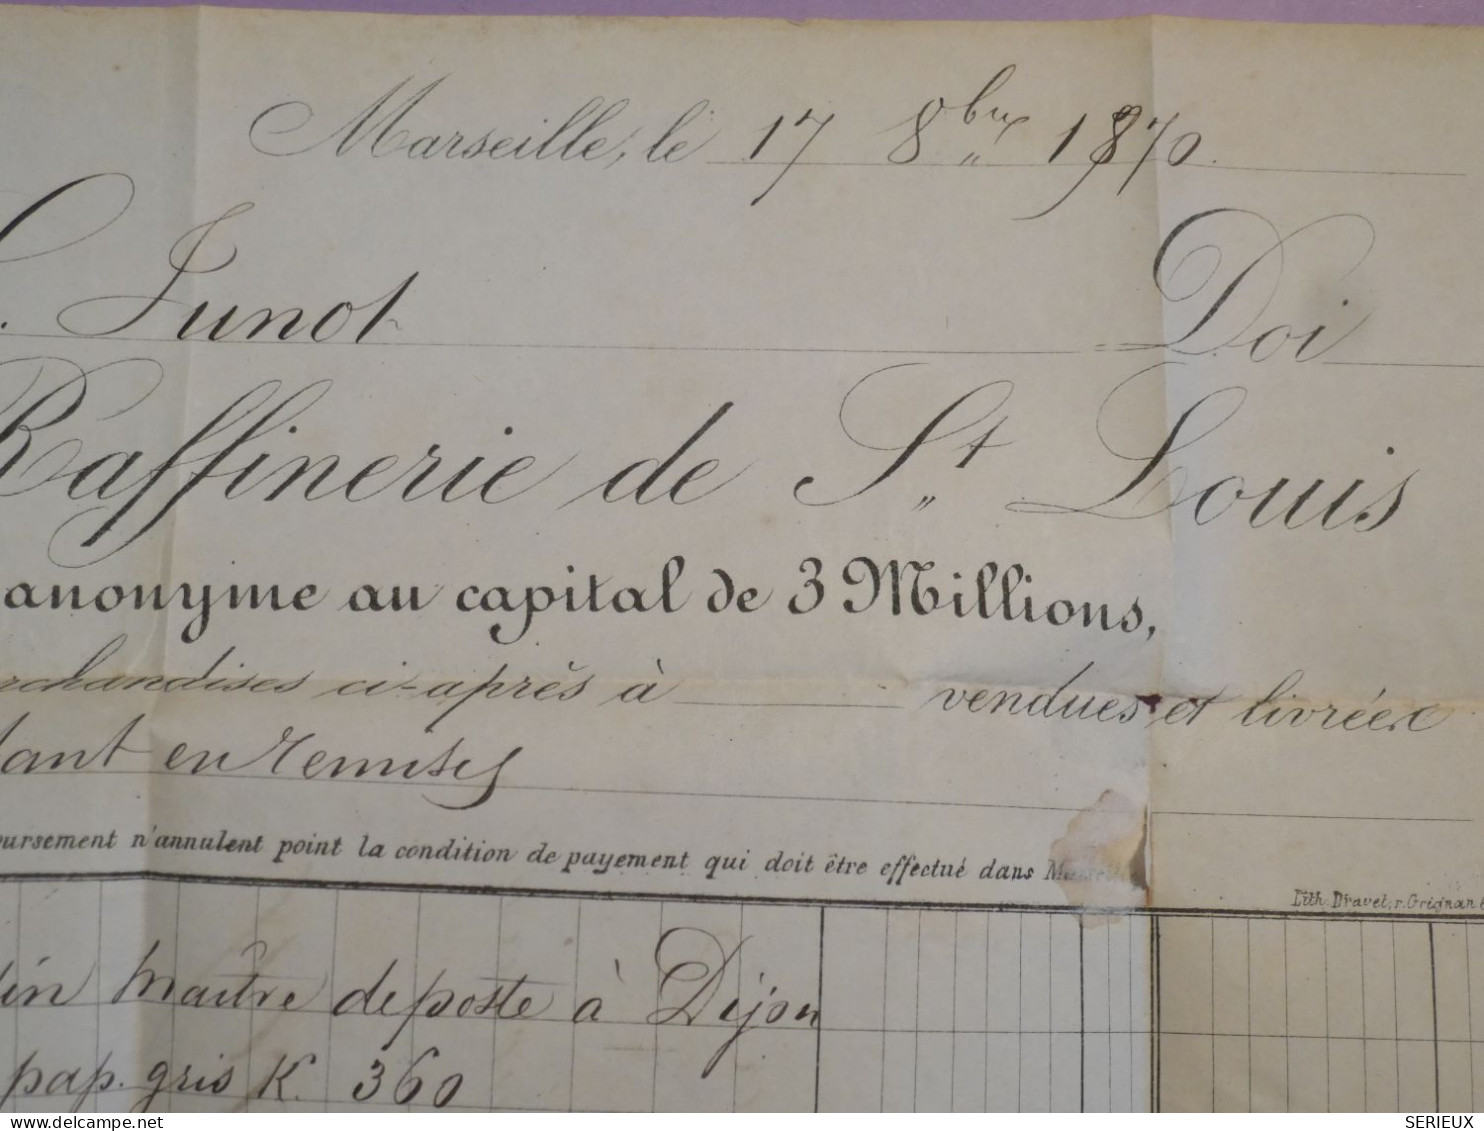 Marseille, le 17 8bre 1870
Junot Doi
Raffinerie de St. Louis
anonyme au capital de 3 Millions,
rchandises ci-après à vendues et livrées
dant en remises
oursement n'annulent point la condition de payement qui doit être effectué dans Marseille
Lith. Dravet, r. Grignan 6
din Maître de poste à Dijon
pap. gris K. 360
www.delcampe.net
SERIEUX